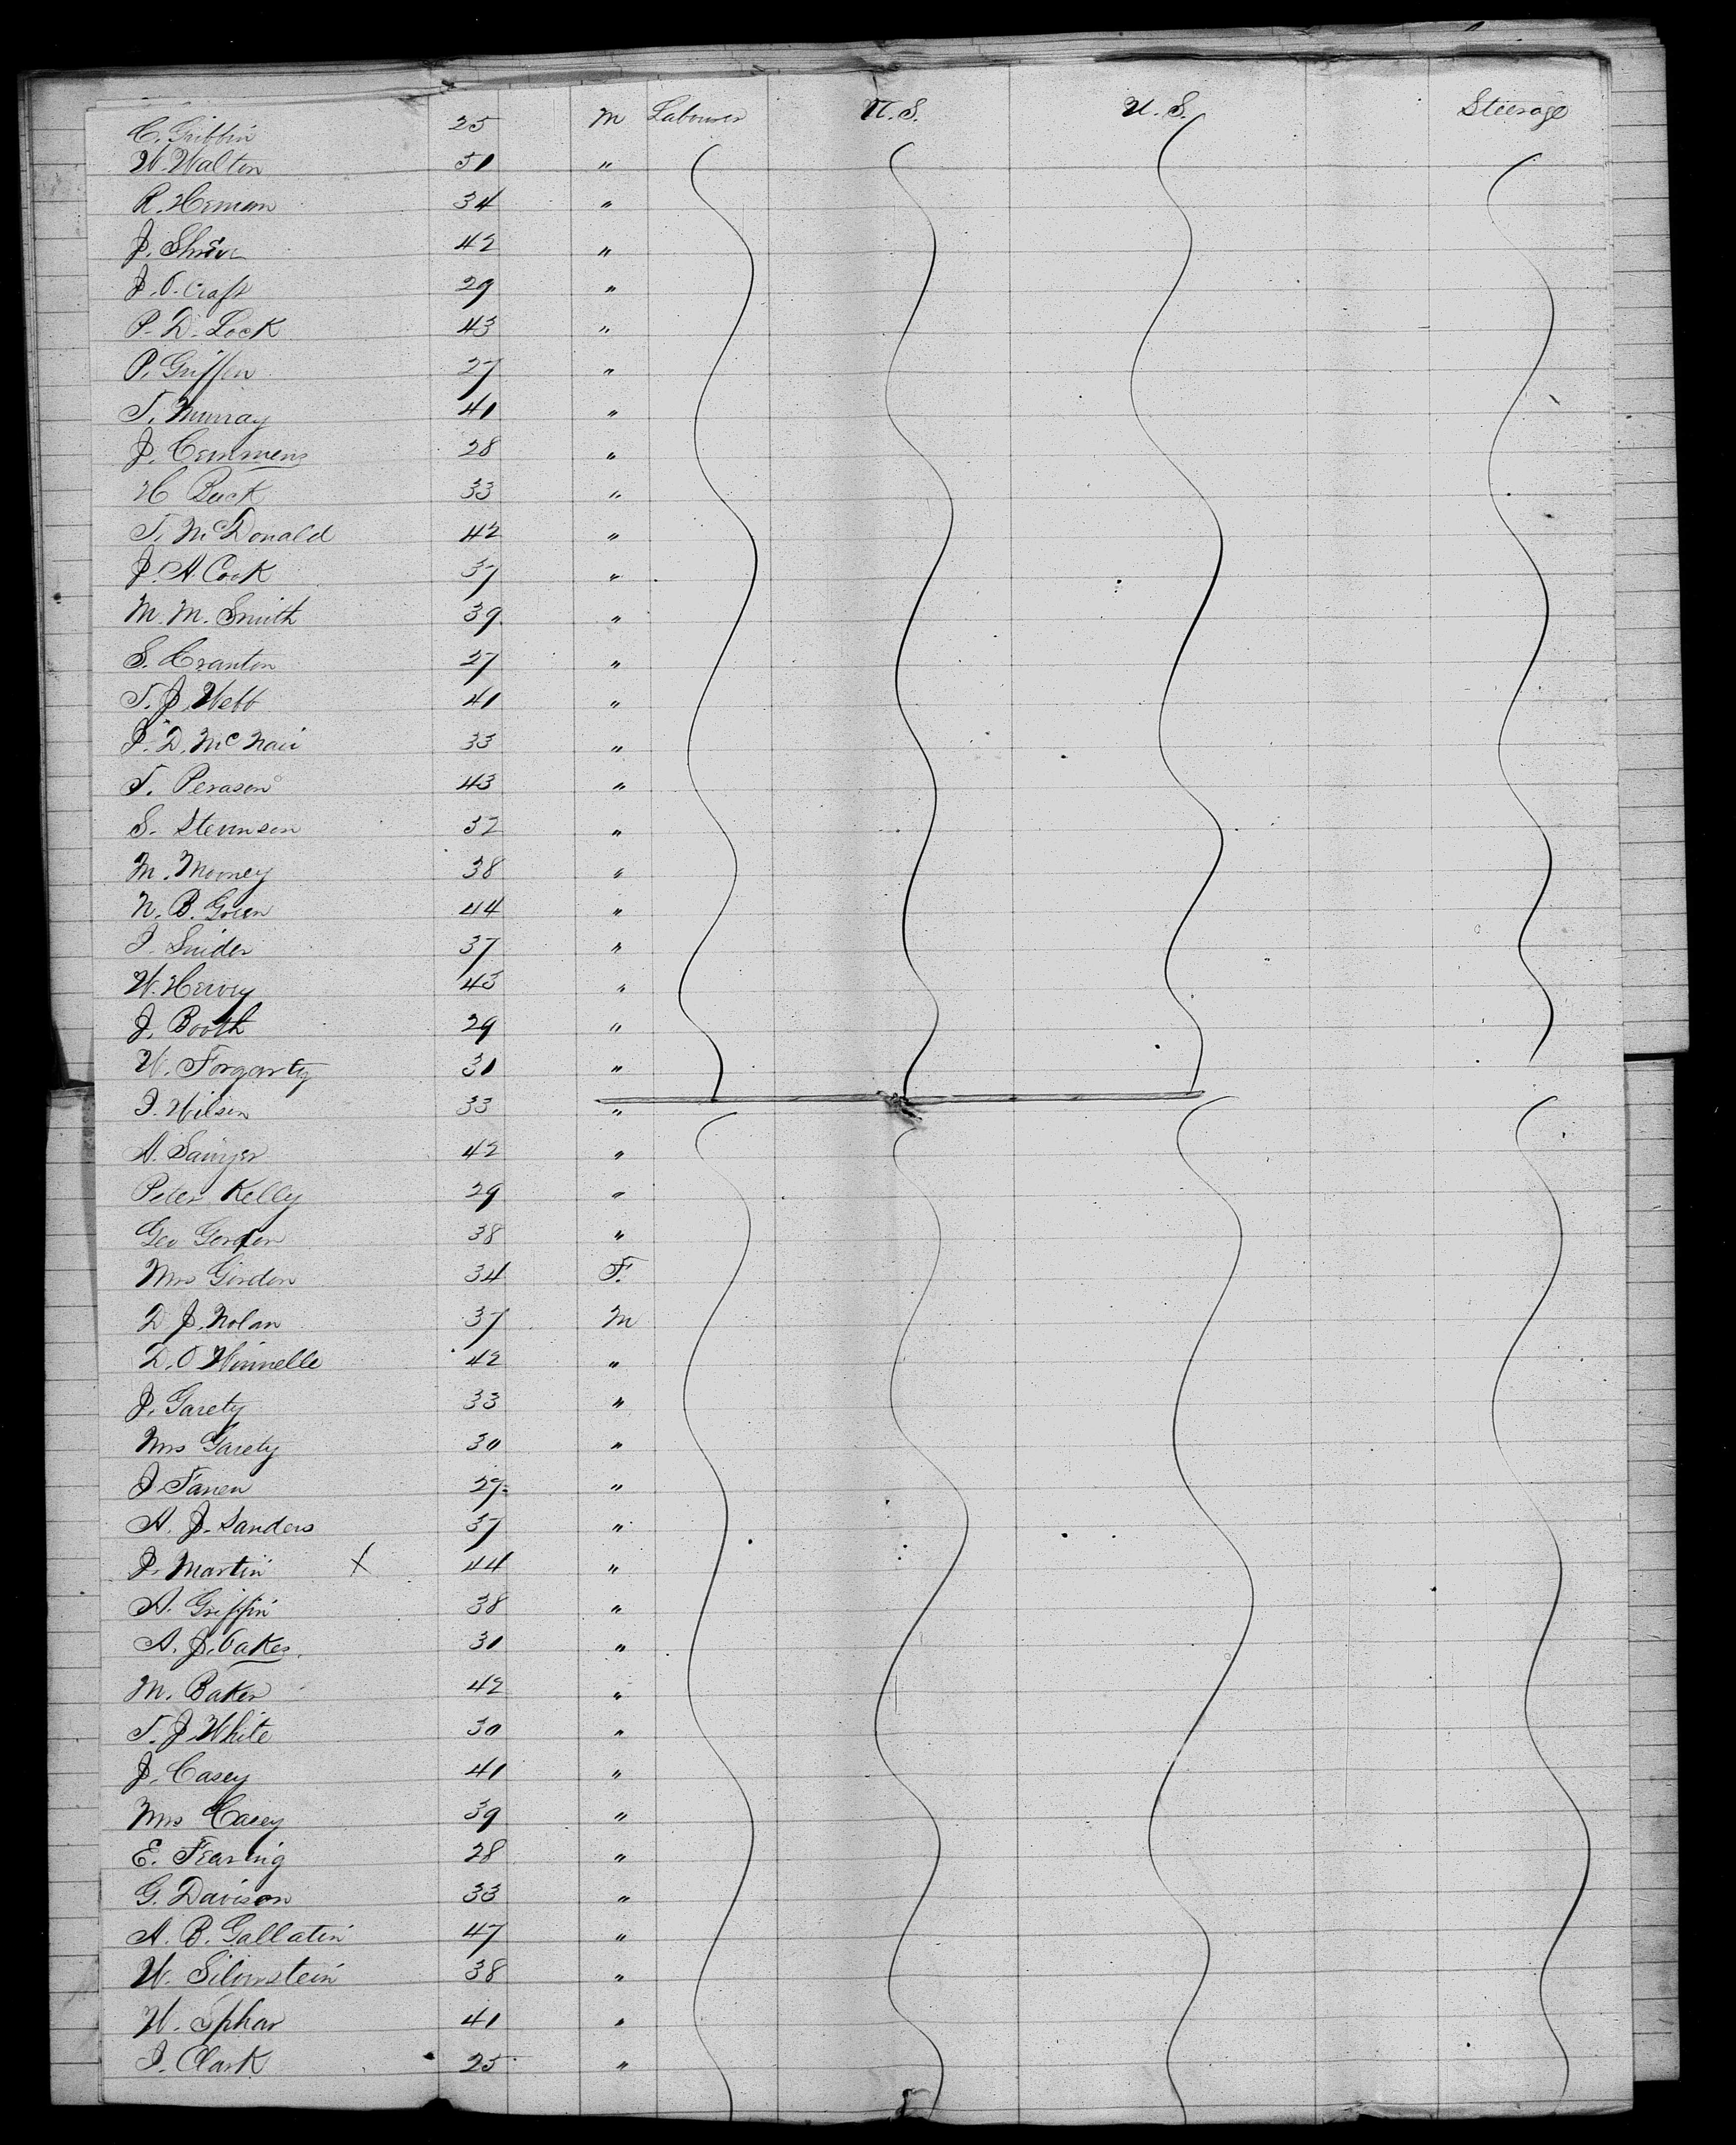 C. Griffin 25 M Labourer U.S. U.S. Steerage
W. Walton 51 "
R. Heman 34 "
J. Shrêve 42 "
J. O. Craft 29 "
P. D. Lock 43 "
P. Griffen 27 "
T. Murray 41 "
J. Cemmens 28 "
H Buck 33 "
T. McDonald 42 "
J. A. Cook 37 "
M. M. Smith 39 "
S. Cranton 27 "
T. J. Webb 41 "
J. D. McNair 33 "
T. Perason 43 "
S. Stevnson 32 "
M. Mooney 38 "
N. B. Green 44 "
J. Snider 37 "
W. Hervey 43 "
J. Booth 29 "
W. Forgarty 31 "
J. Wilson 33 "
A. Sawyer 42 "
Peter Kelly 29 "
Geo Gordon 38 "
Mrs Gordon 34 F.
D J. Nolan 37 M
D. O Winnelle 42 "
J. Garety 33 "
Mrs Garety 30 "
J. Fanen 27 "
A. J. Sanders 37 "
P. Martin X 44 "
A. Griffin 38 "
A. J. Oakes. 31 "
M. Baker 42 "
T. J. White 30 "
J. Casey 41 "
Mrs Casey 39 "
E. Fearing 28 "
G. Davison 33 "
A. B. Gallatin 47 "
W. Silverstein 38 "
W. Sphar 41 "
J. Clark 25 "